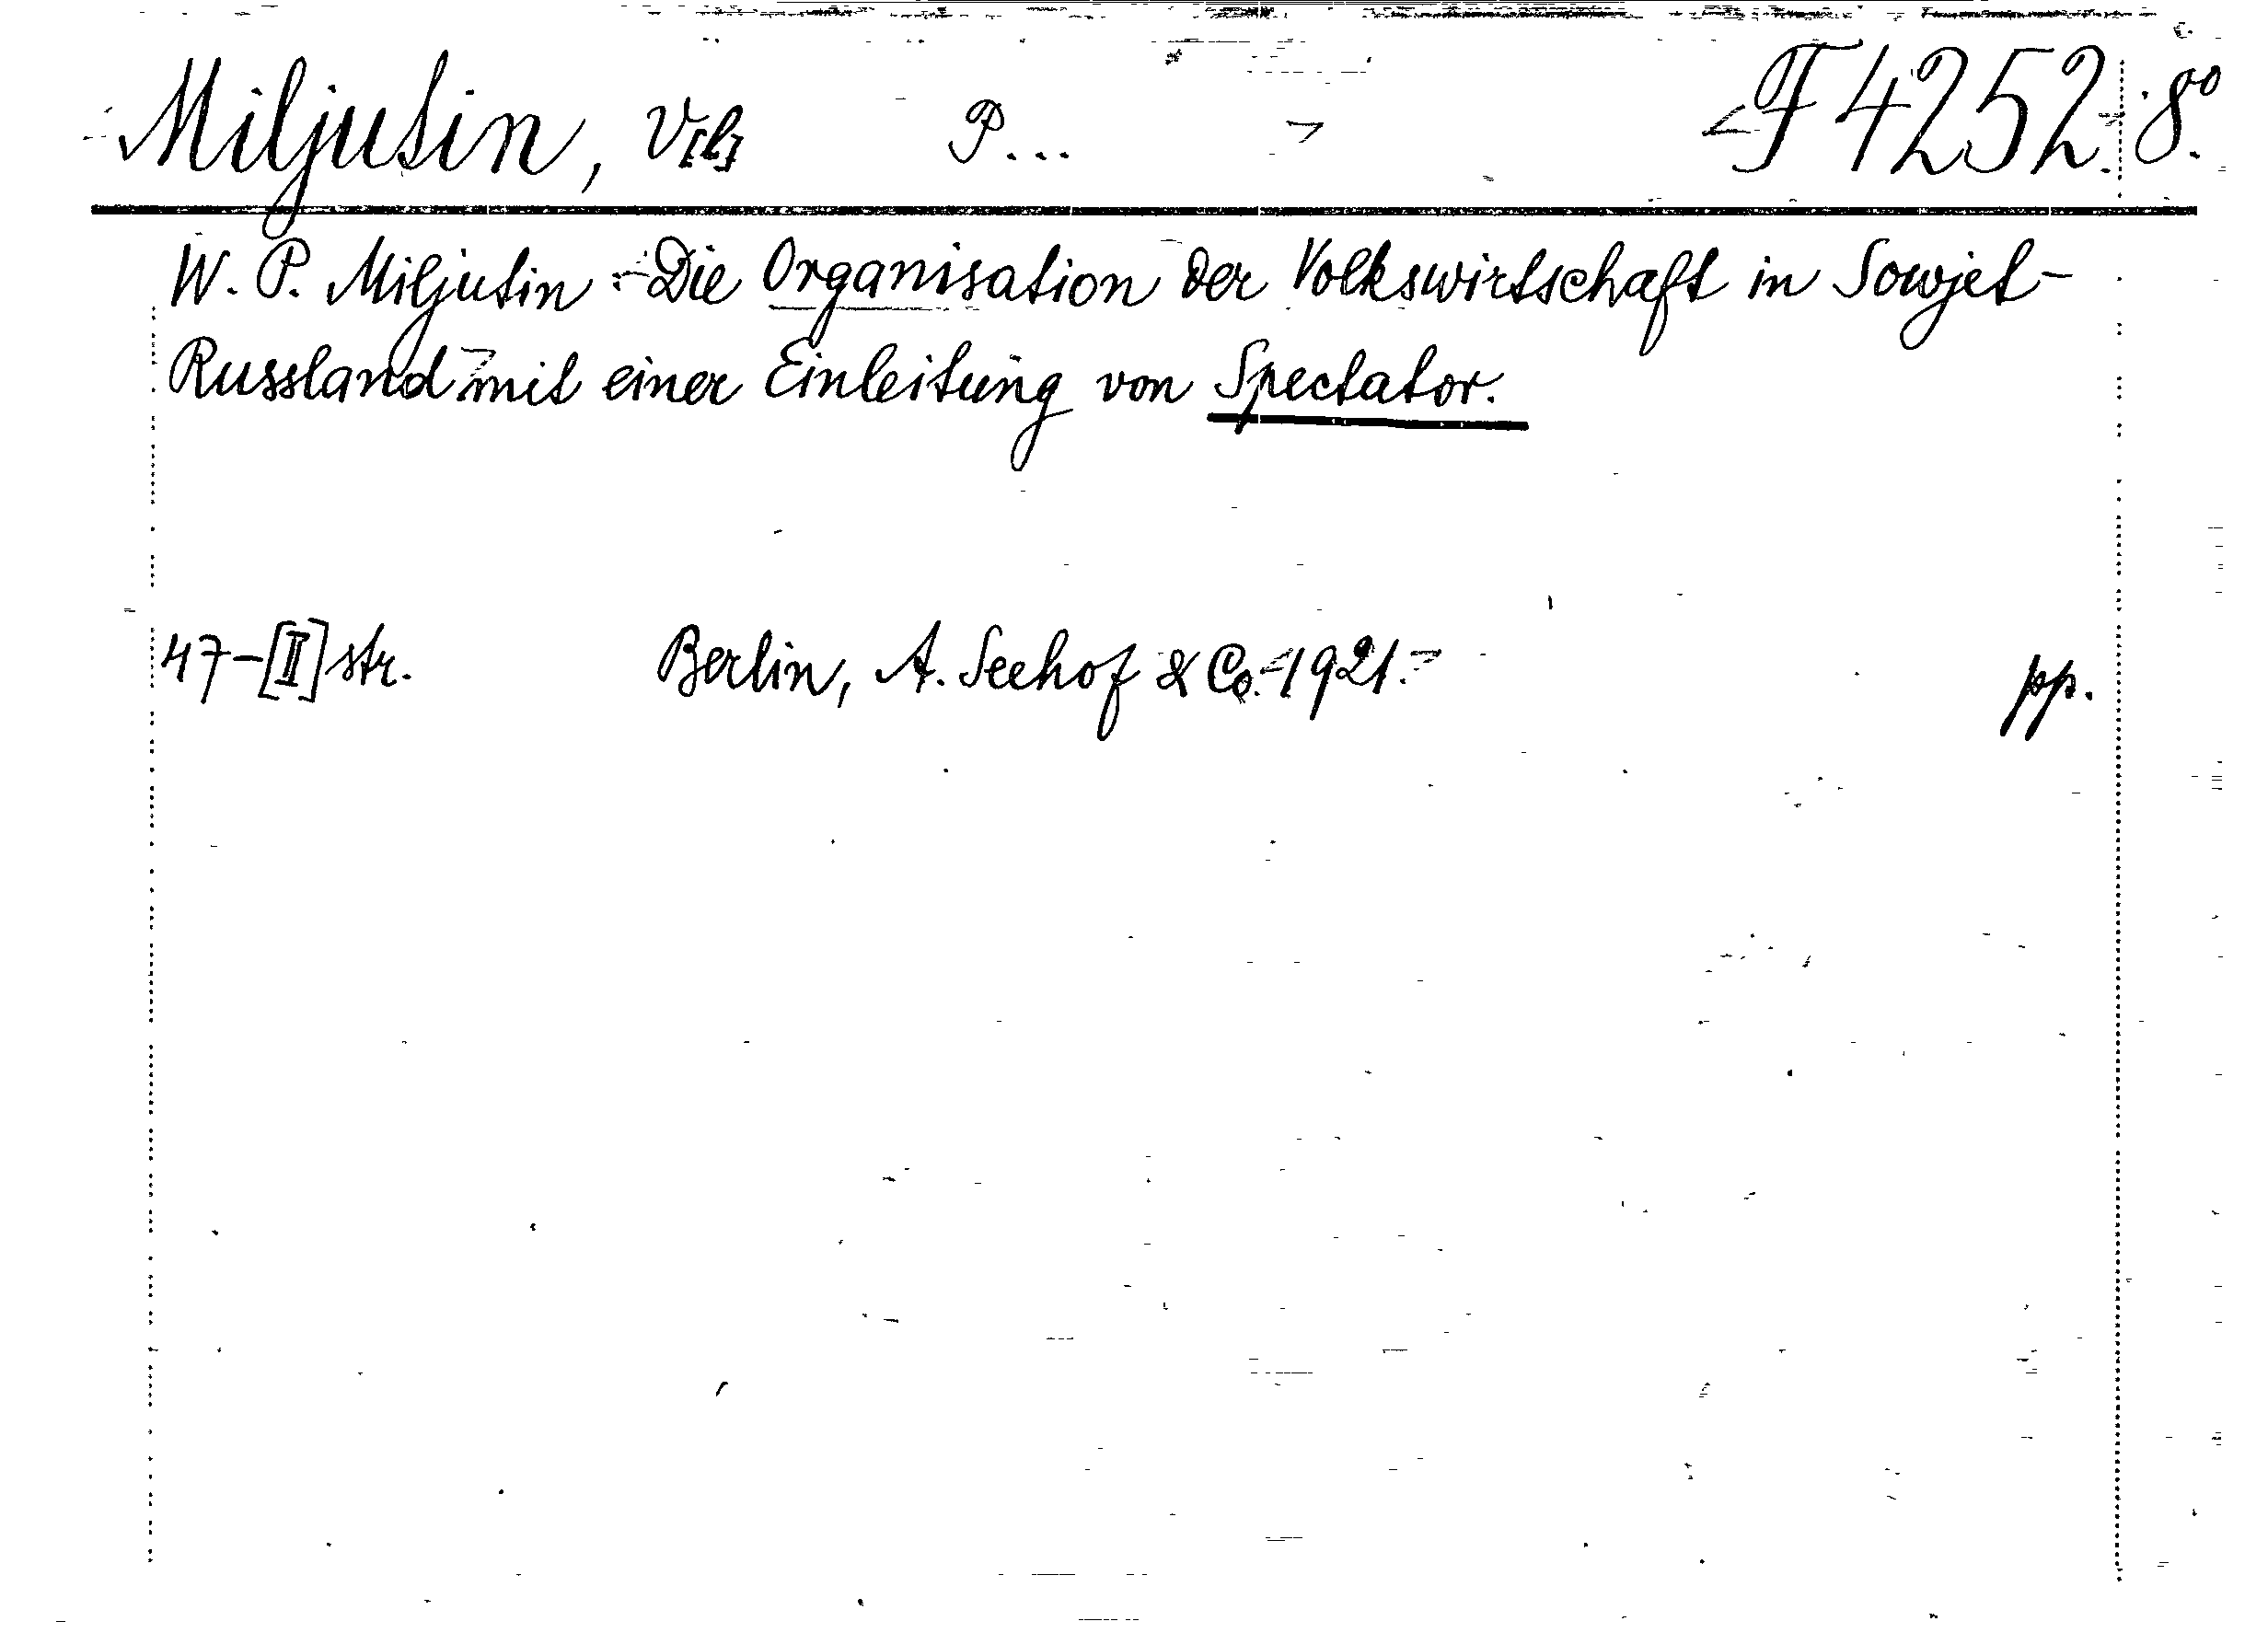 Miljutin, V[l] P... F 4252. 8º.
W. P. Miljutin Die Organisation der Volkswirtschaft in Sowjet-
Russland mit einer Einleitung von Spectator.
47-[II] str. Berlin, A. Seehof & Co. 1921. pp.